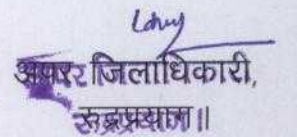 अपर जिलाधिकारी,
रूद्रप्रयाग॥